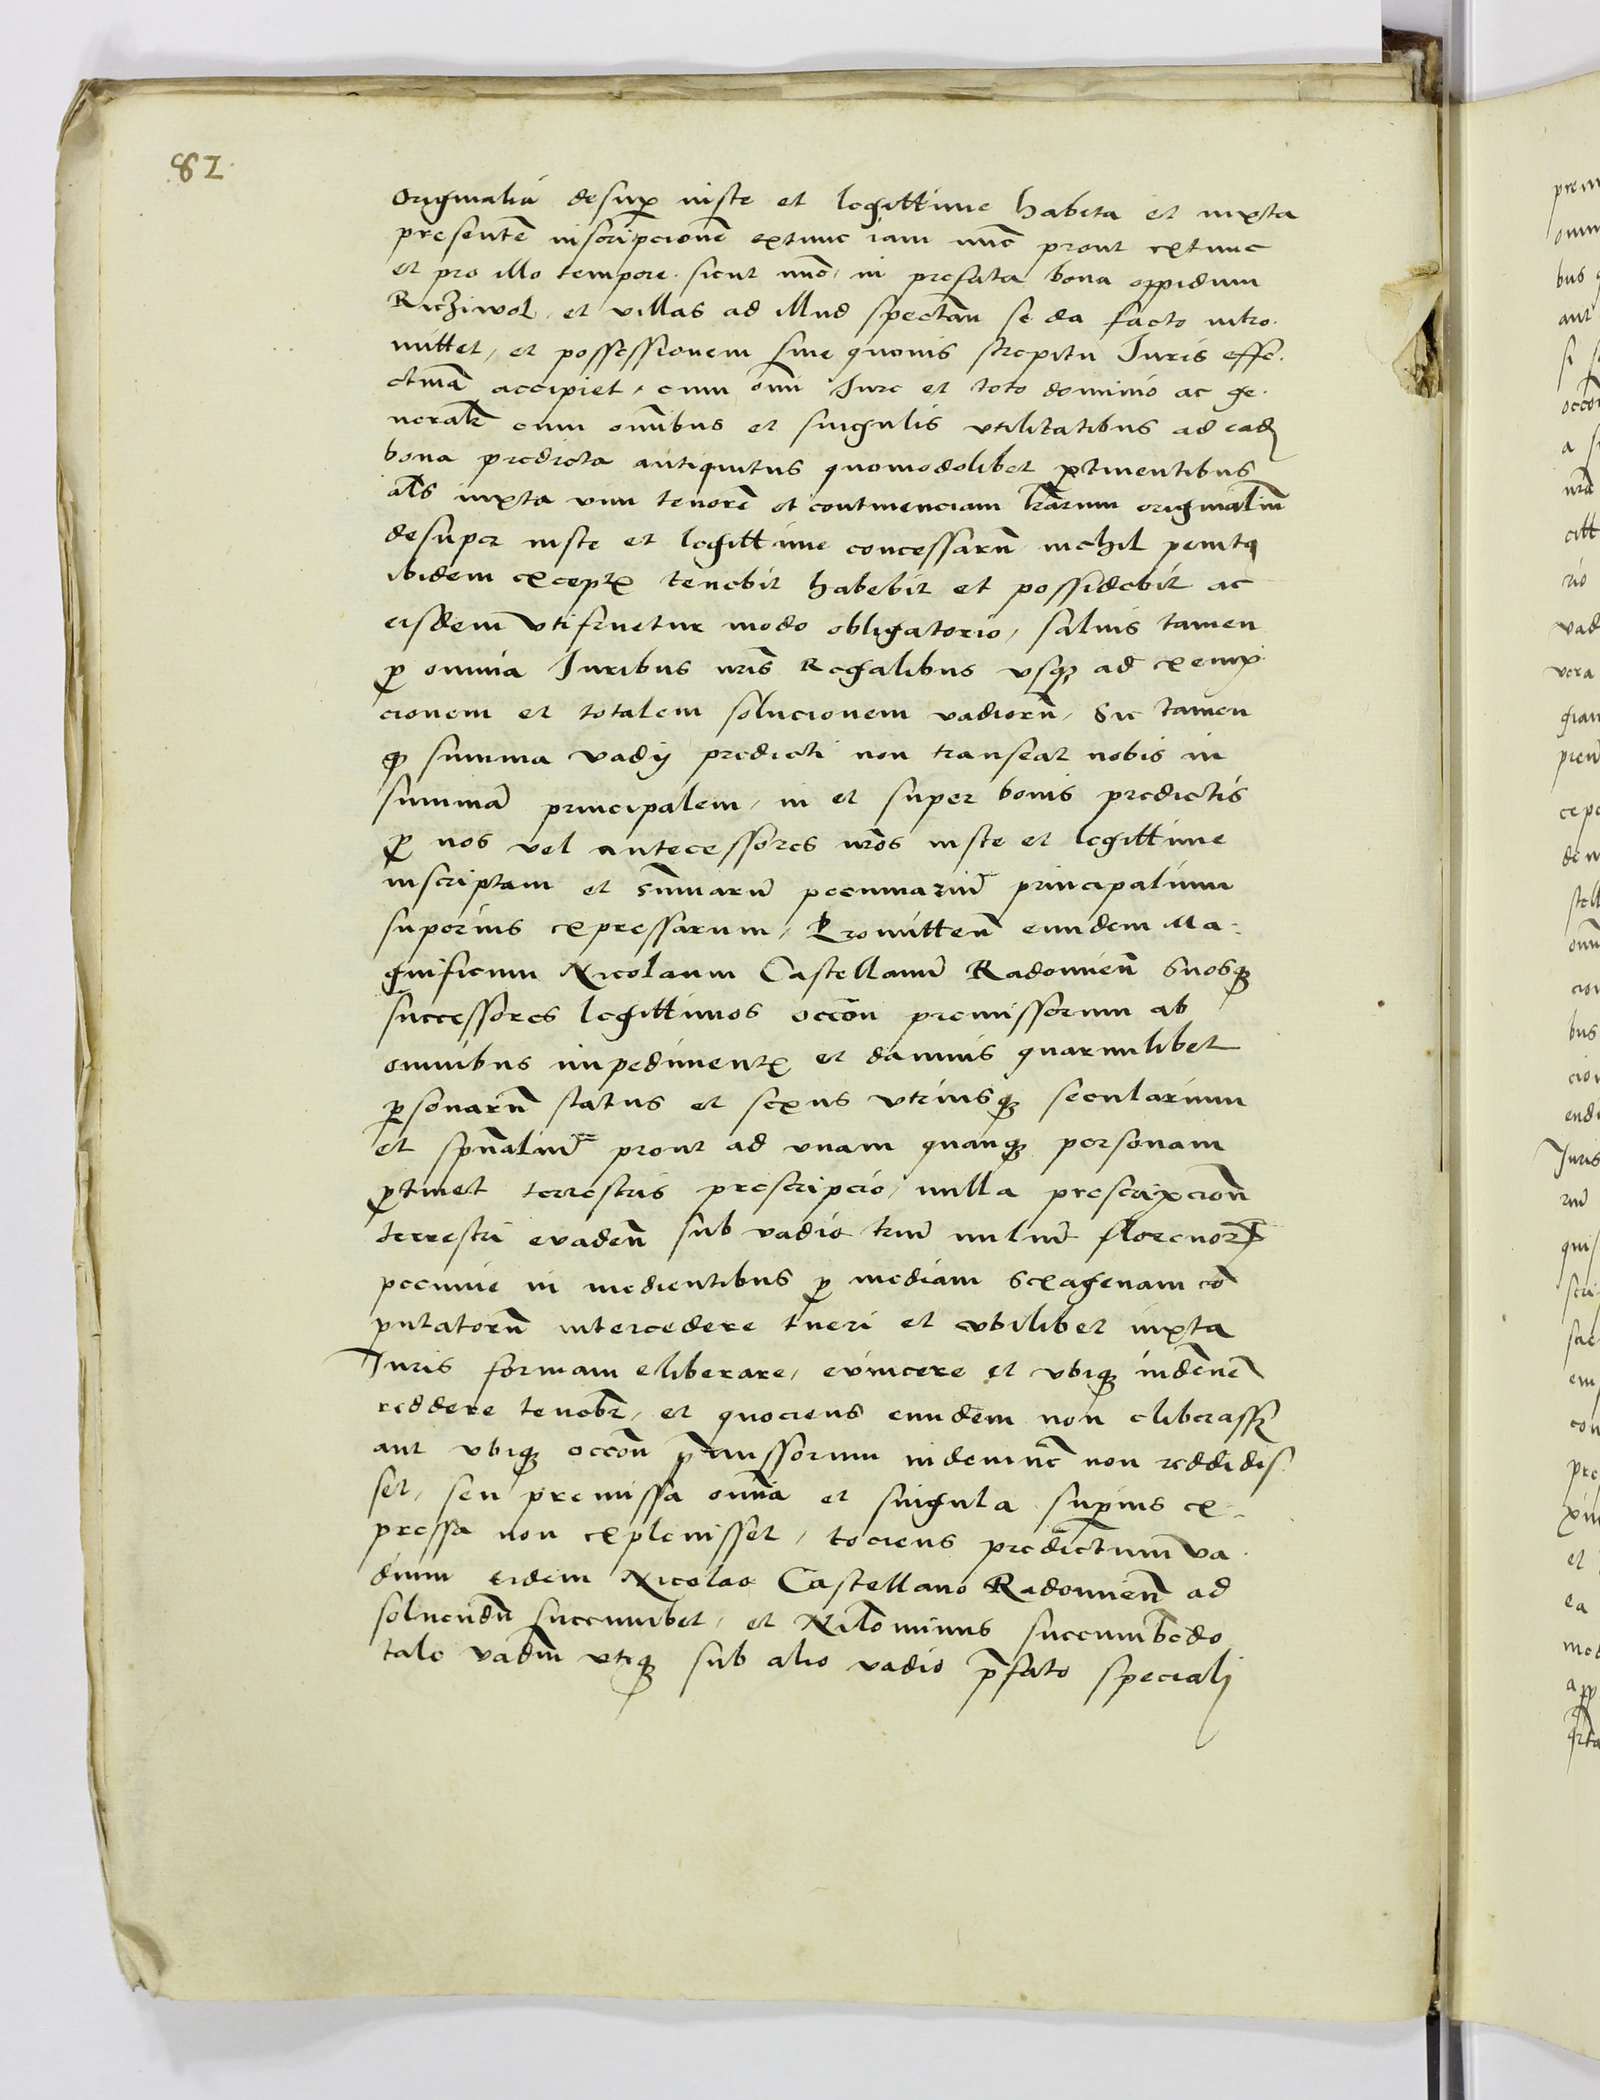 82.
Originalia desup iuste et legittime habita et iuxta
presente inscripcione extunc iam nuc prout extunc
et pro illo tempore sicut nuc, in prefata bona oppidum
Ricziwol, et villas ad illud spectan se da facto intro-
mittet, et possessionem sine quouis strepitu Juris effe-
ctiua accipiet, cum omi Jure et toto dominio ac ge-
neralr cum omibus et singulis vtilitatibus ad ead
bona predicta antiquitus quomodolibet ptinentibus
als iuxta vim tenore et continenciam lrarum originaliu
desuper iuste et legittime concessaru nichil penitq
ibidem except tenebit habebit et possidebit ac
eisdem vtifruetur modo obligatorio, saluis tamen
p omnia Juribus nris Regalibus vsq ad exemp-
cionem et totalem solucionem vadioru, Sic tamen
q summa vadij predicti non transeat nobis in
summa principalem, in et super bonis predictis
p nos vel antecessores nros iuste et legittime
inscriptam et summaru pecuniariu principalium
superius expressarum, Promitten eundem Ma-
gnificum Nicolaum Castellanu Radomien suosq
successores legittimos occon premissorum ab
omnibus impediment et damnis quarumlibet
psonaru status et sexus vtriusq secularium
et spualiu prout ad vnam quanq personam
ptinet terrestris prescripcio, nulla prescripcion
terrestri euaden sub vadio triu miliu florenor
pecunie in medientibus p mediam sexagenam co
putatoru intercedere tueri et vbilibet iuxta
Juris formam eliberare, euincere et vbiq indene
reddere tenebr, et quociens eundem non eliberass
aut vbiq occon pmissorum indemne non reddidis-
set, seu premissa omia et singula supius ex-
pressa non expleuisset, tociens predictum va-
dium eidem Nicolao Castellano Radomien ad
soluendu succumbet, et Nilominus succumbedo
tale vadiu vtiq sub alio vadio pfato speciali